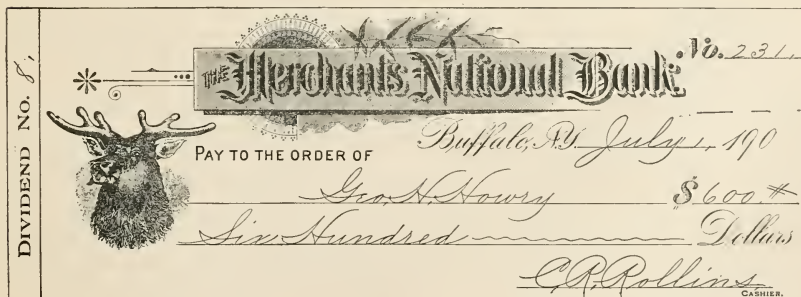 DIVIDEND No. 8;
THE Merchants National Bank. No. 231,
Buffalo, N.Y. July 1, 190
PAY TO THE ORDER OF
Geo. N. Howry $ 600.#
Six Hundred Dollars
C. R. Rollins,
CASHIER.